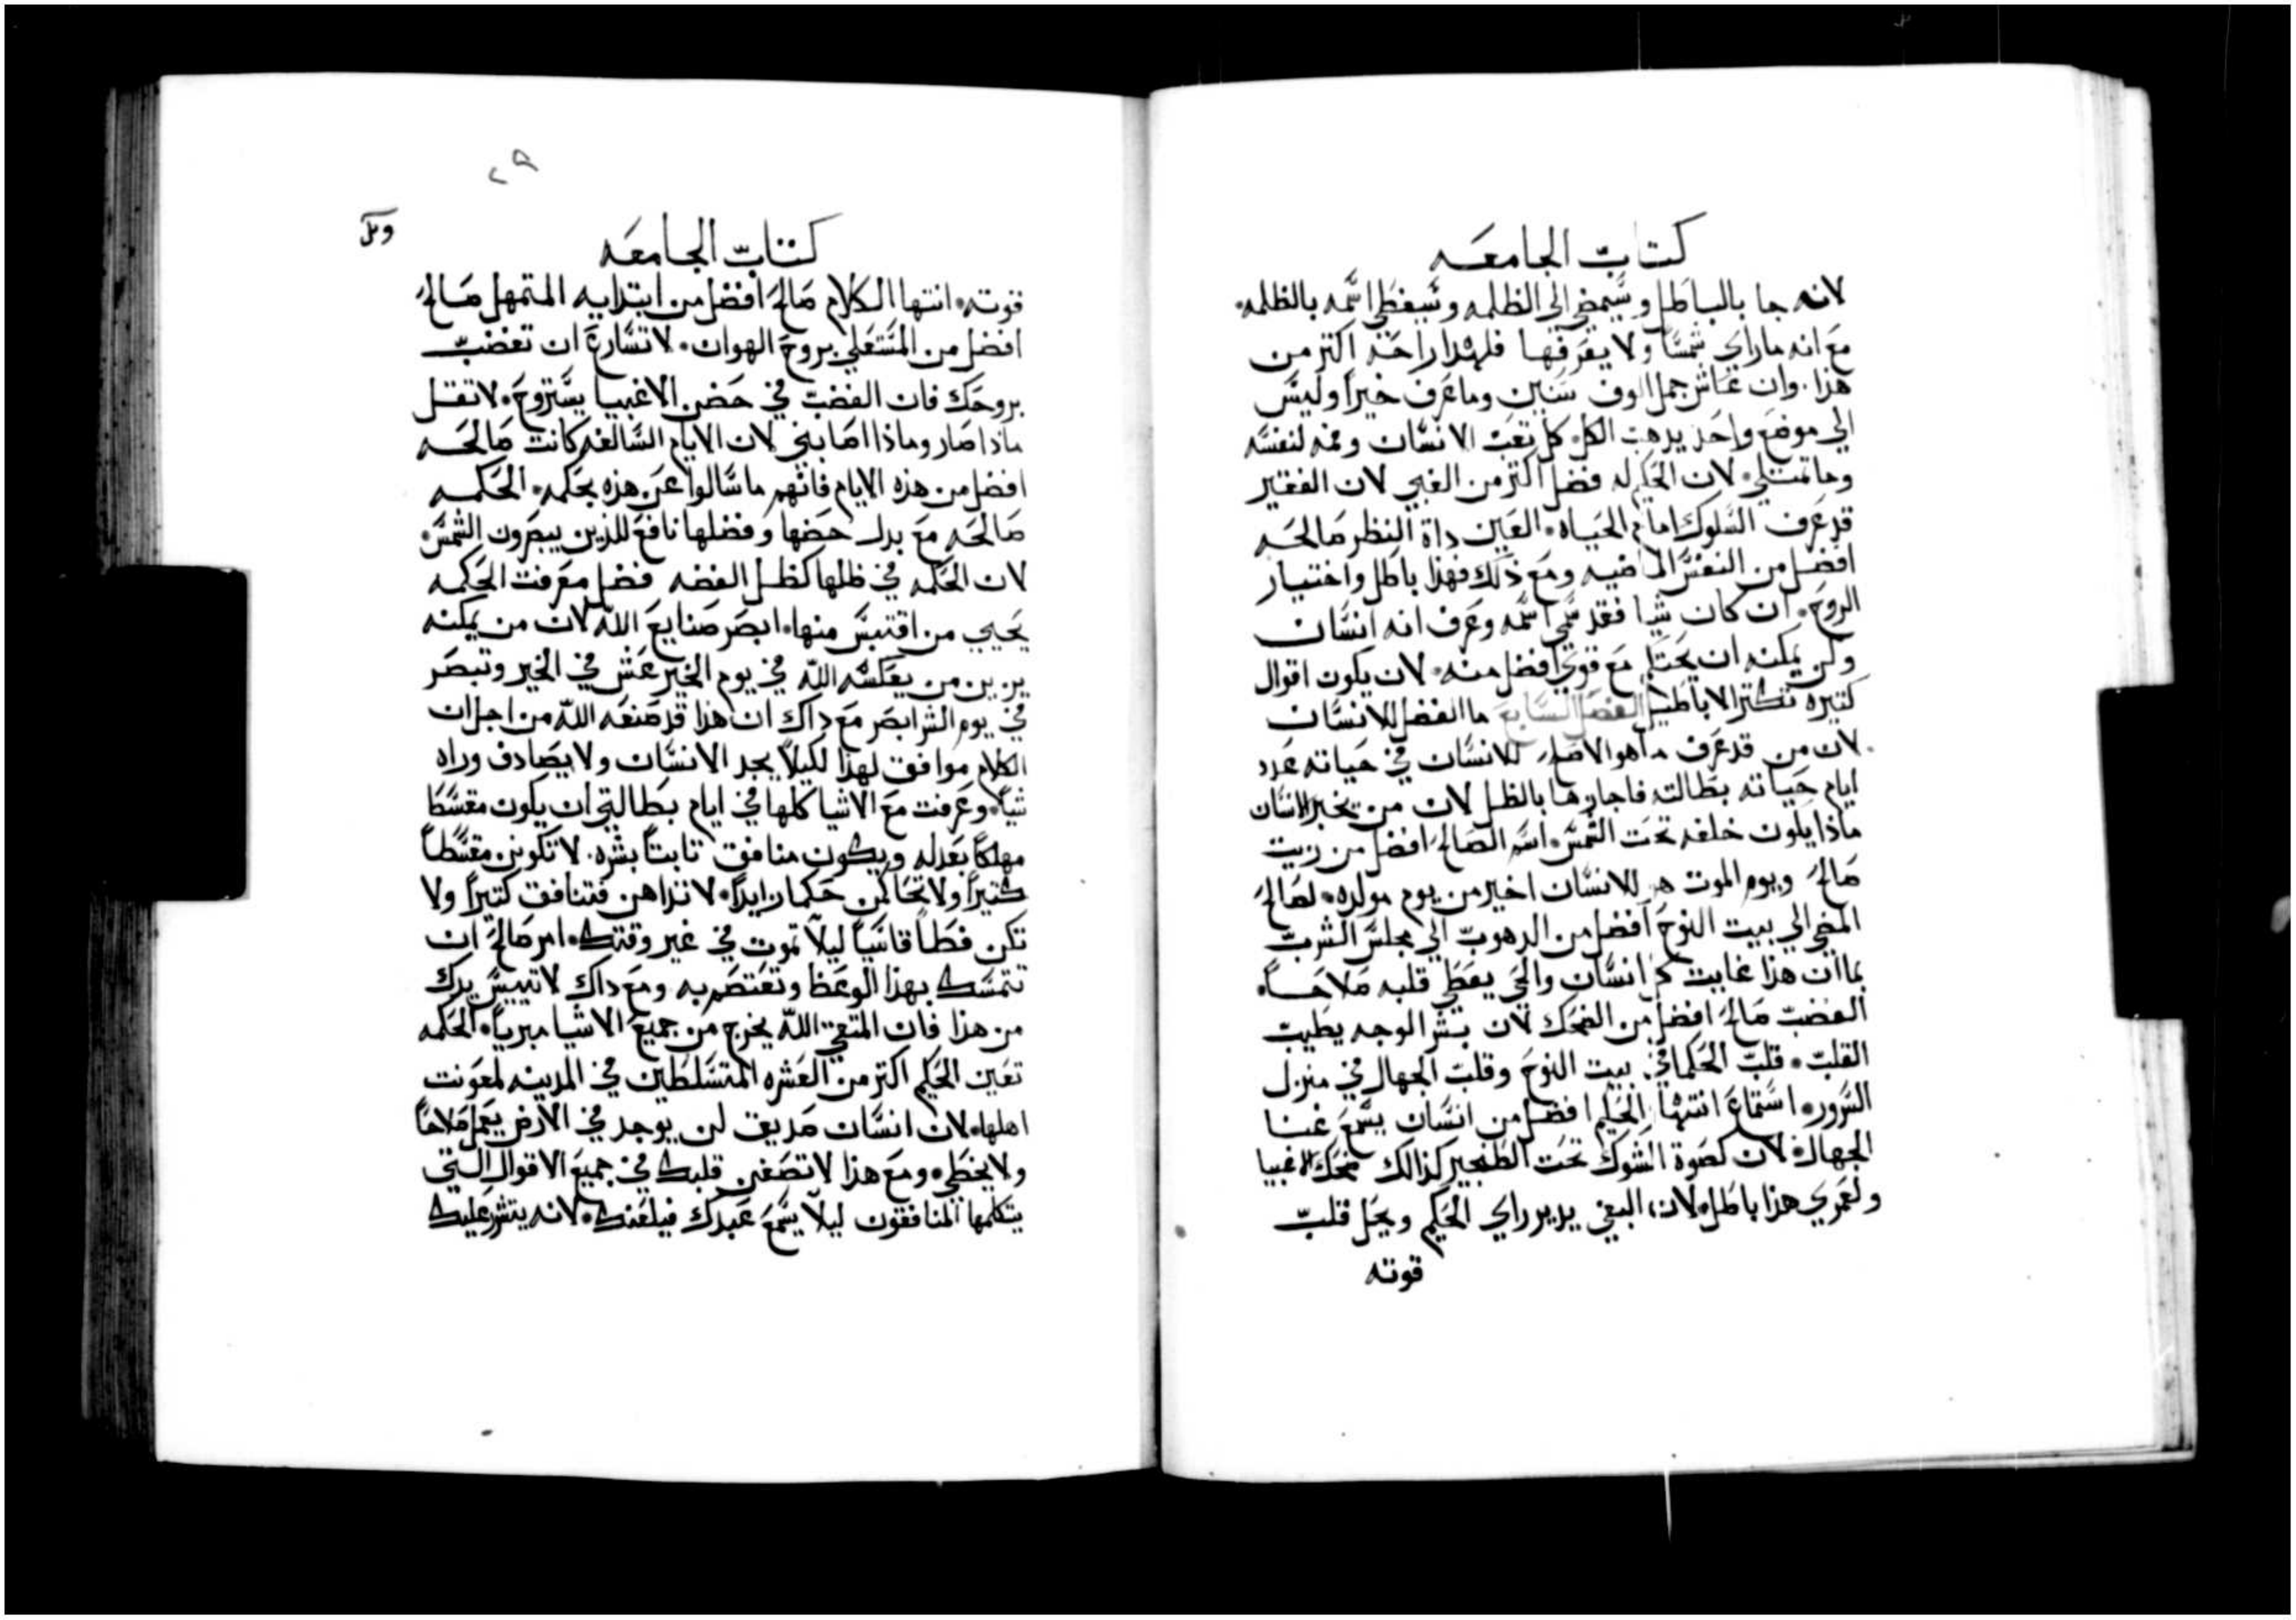 كتاب الجامعه
لانه جا بالباطل وسيمضي الي الظلمه وسيغطي اسمه بالظلمه
مع انه ماراي شمسًا ولا يعرفها فلهذا راحة اكتر من
هذا وان عاش جمل الوف سنين وما عرف خيرًا وليس
الي موضع واحد يدهب الكل كل تعب الانسان وفمه لنفسه
وما تمتلي لان الحكيم له فضل اكتر من الغبي لان الفقير
قد عرف السلوك امام الحياه العين داة النظر صالحه
افضل من النفس الماضيه ومع ذلك فهذا باطل واختيار
الروح ان كان شيا فقد سمي اسمه وعرف انه انسان
ولن يمكنه ان يحتكم مع قوي افضل منه لان يكون اقوال
كتيره تكتر الاباطيل الفصل السابع ما الفضل للانسان
لان من قد عرف ما هو الاصلح للانسان في حياته عدد
ايام حياته بطالته فاجازها بالظل لان من يخبر الانسان
ماذا يكون خلفه تحت الشمس اسم الصالح افضل من زيت
صالح ويوم الموت هو للانسان اخير من يوم مولده لصالح
المضي الي بيت النوح افضل من الدهوب الي مجلس الشرب
بما ان هذا غايت كل انسان والحي يعطي قلبه صلاحًا
الغضب صالح افضل من الضحك لان بشر الوجه يطيب
القلب قلب الحكما في بيت النوح وقلب الجهال في منزل
السرور استماع انتهار الحكيم افضل من انسان يسمع غنا
الجهال لان كصوة الشوك تحت الطنجير كذالك ضحك الاغبيا
ولعمري هذا باطل لان البغي يدير راي الحكيم ويحل قلب
قوته
٢٩
كتاب الجامعه
قوته انتها الكلام صالح افضل من ابتدايه المتمهل صالح
افضل من المستعلي بروح الهوان لا تسارع ان تغضب
بروحك فان الغضب في حضن الاغبيا يستروح لا تقل
ماذا صار وماذا اصابني لان الايام السالفه كانت صالحه
افضل من هذه الايام فانهم ما سالوا عن هذه بحكمه الحكمه
صالحه مع بدل حضها وفضلها نافع للذين يبصرون الشمس
لان الحكمه في ظلها كظل الفضه فضل معرفت الحكمه
يحيي من اقتبس منها ابصر صنايع الله لان من يمكنه
يزين من يعكسه الله في يوم الخير عش في الخير وتبصر
في يوم الشر ابصر مع داك ان هذا قد صنعه الله من اجل ان
الكلام موافق لهذا لكيلا يجد الانسان ولا يصادف وراه
شيًا وعرفت مع الاشيا كلها في ايام بطالتي ان يكون مقسطا
مهلكًا بعدله ويكون منافق تابتًا بشره لا تكونن مقسطًا
كتيرًا ولا تحاكمن حكما زايدًا لا تداهن فتنافق كتيرًا ولا
تكن فظًا قاسيًا ليلا تموت في غير وقتك امر صالح ان
تتمسك بهذا الوعظ وتعتصم به ومع داك لا تيبس يدك
من هذا فان المتقي الله يخرج من جميع الاشيا مبريًا الحكمه
تعين الحكيم اكتر من العشره المتسلطين في المدينه لمعونت
اهلها لان انسان صديق لن يوجد في الارض يعمل صلاحًا
ولا يخطي ومع هذا لا تصغين قلبك في جميع الاقوال التي
يتكلمها المنافقون ليلا يسمع عبدك فيلعنك لانه يتشر عليك